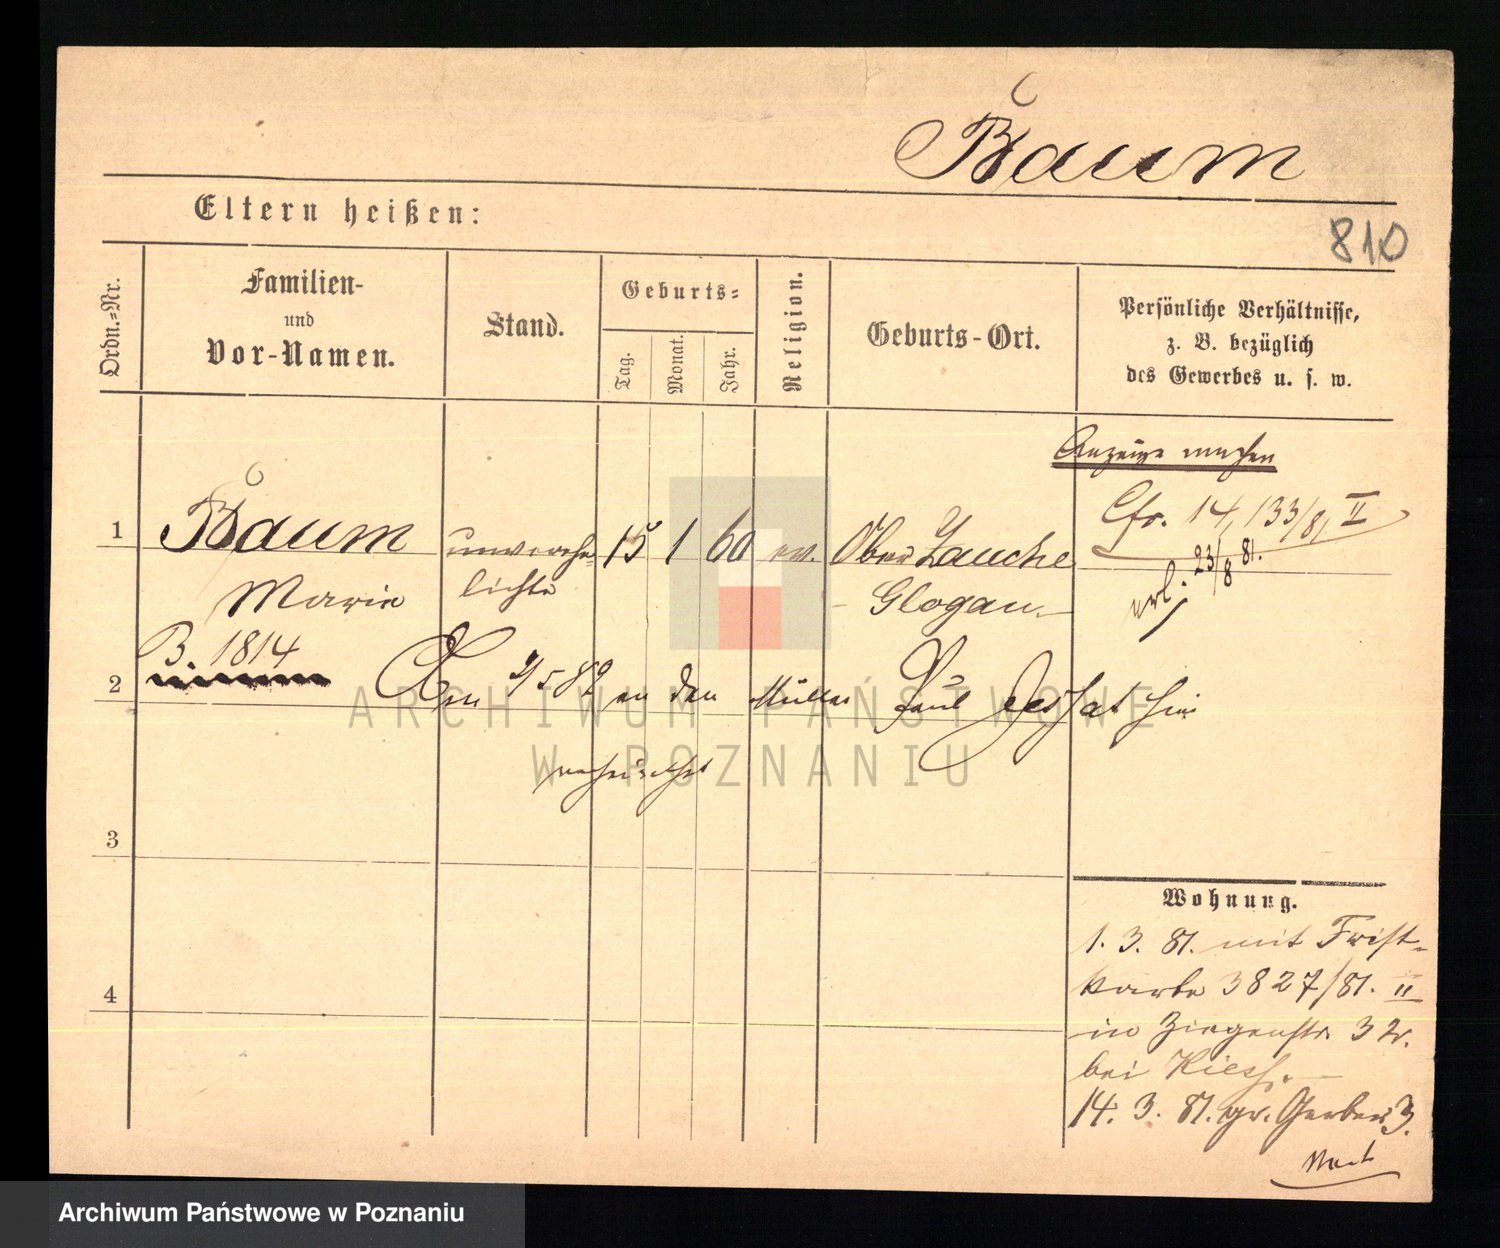 Baum
Eltern heißen:
810
Ordn.=Nr.
Familien-
und
Vor-Namen.
Stand.
Geburts=
Tag.
Monat.
Jahr.
Religion.
Geburts-Ort.
Persönliche Verhältnisse,
z. B. bezüglich
des Gewerbes u. s. w.
Anzeige machen
Cfr. 14, 133/81 II
23/8 81.
1 Baum unverehe= 15 1 60 ev. Ober Zauche
Marie lichte Glogau
B. 1814
2 Am 2/5 82 an den Müller Paul hier
verheirathet
3
4
Wohnung.
1. 3. 81. mit Frist-
karte 3827/81. II
in Ziegenstr. 32.
bei
14. 3. 81. gr. Gerber 3.
ARCHIWUM PAŃSTWOWE
W POZNANIU
Archiwum Państwowe w Poznaniu